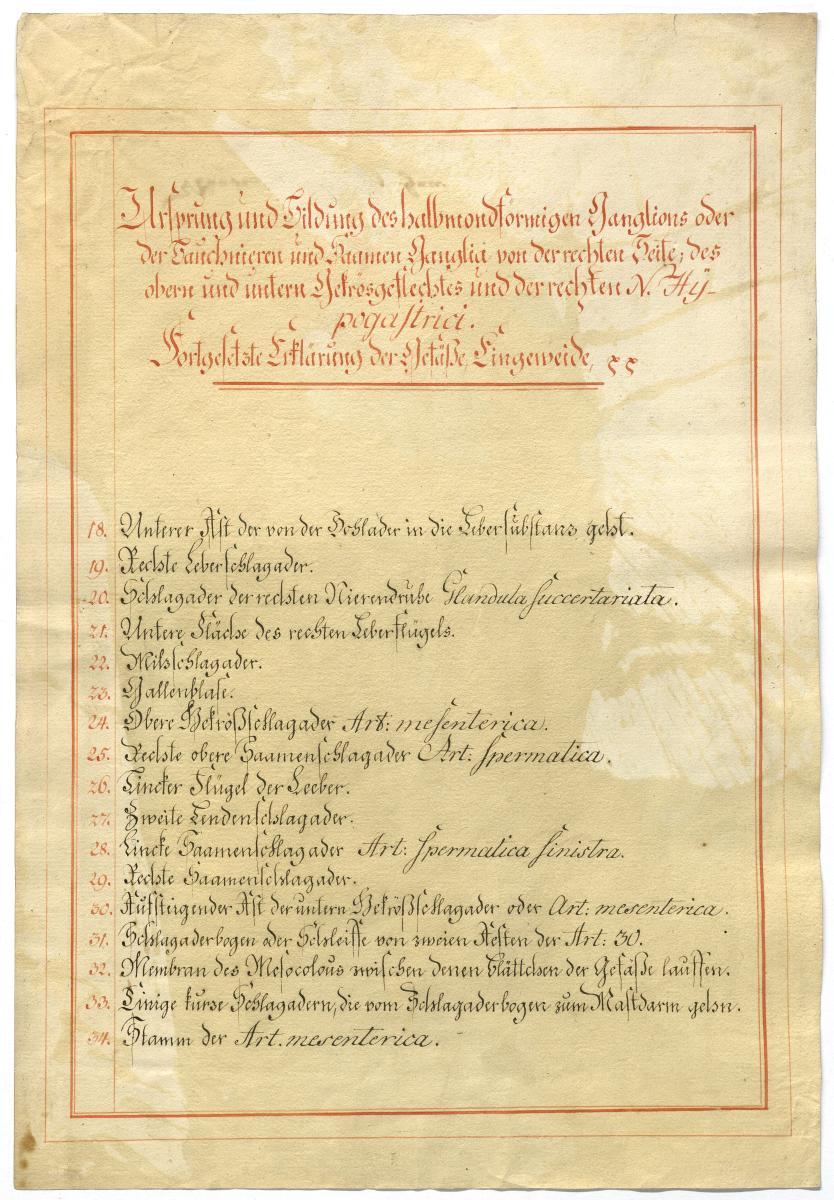 Ursprung und Bildung des halbmondförmigen Ganglions oder
der Bauchnieren und Saamen Ganglia von der rechten Seite; des
obern und untern Gekrösgeflechtes und der rechten N. Hÿ-
pogastrici.
Fortgesetzte Erklärung der Gefäße, Eingeweide,
18. Unterer Ast der von der Schlader in die Lebersubstanz geht.
19. Rechte Leberschlagader.
20. Schlagader der rechten Nierendrube Glandula succertariata.
21. Untere Fläche des rechten Leberflügels.
22. Milschlagader.
23. Gallenblase.
24. Obere Gekrößschlagader Art: mesenterica.
25. Rechte obere Saamenschlagader Art: spermatica.
26. Lincker Flügel der Leeber.
27. Zweite Lendenschlagader.
28. Lincke Saamenschlagader Art: spermatica sinistra.
29. Rechte Saamenschlagader.
30. Aufsteigender Ast der untern Gekrößschlagader oder Art: mesenterica.
31. Schlagaderbogen oder Schleiffe von zweien Aesten der Art: 30.
32. Membran des Mesocolous zwischen denen blättchen der Gefäße lauffen.
33. Einige kurze Schlagadern, die vom Schlagaderbogen zum Mastdarm gehn.
34. Stamm der Art. mesenterica.